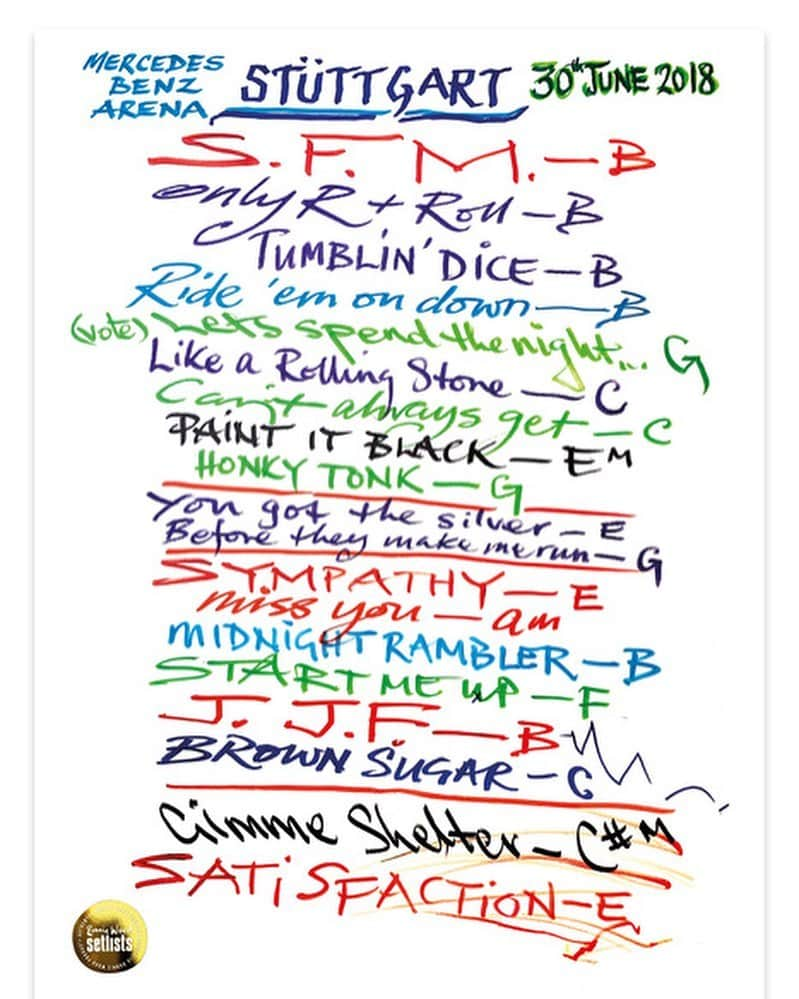 MERCEDES
BENZ
ARENA
STÜTTGART
30th JUNE 2018
S. F. M. – B
only R + Roll – B
TUMBLIN' DICE – B
Ride 'em on down — B
(vote) Lets spend the night... G
Like a Rolling Stone — C
Can't always get – C
PAINT IT BLACK – EM
HONKY TONK – G
You got the silver – E
Before they make me run – G
SYMPATHY – E
miss you – am
MIDNIGHT RAMBLER – B
START ME UP – F
J. J. F. – B
BROWN SUGAR – C
Gimme Shelter – C#M
SATISFACTION – E
Ronnie Wood
setlists